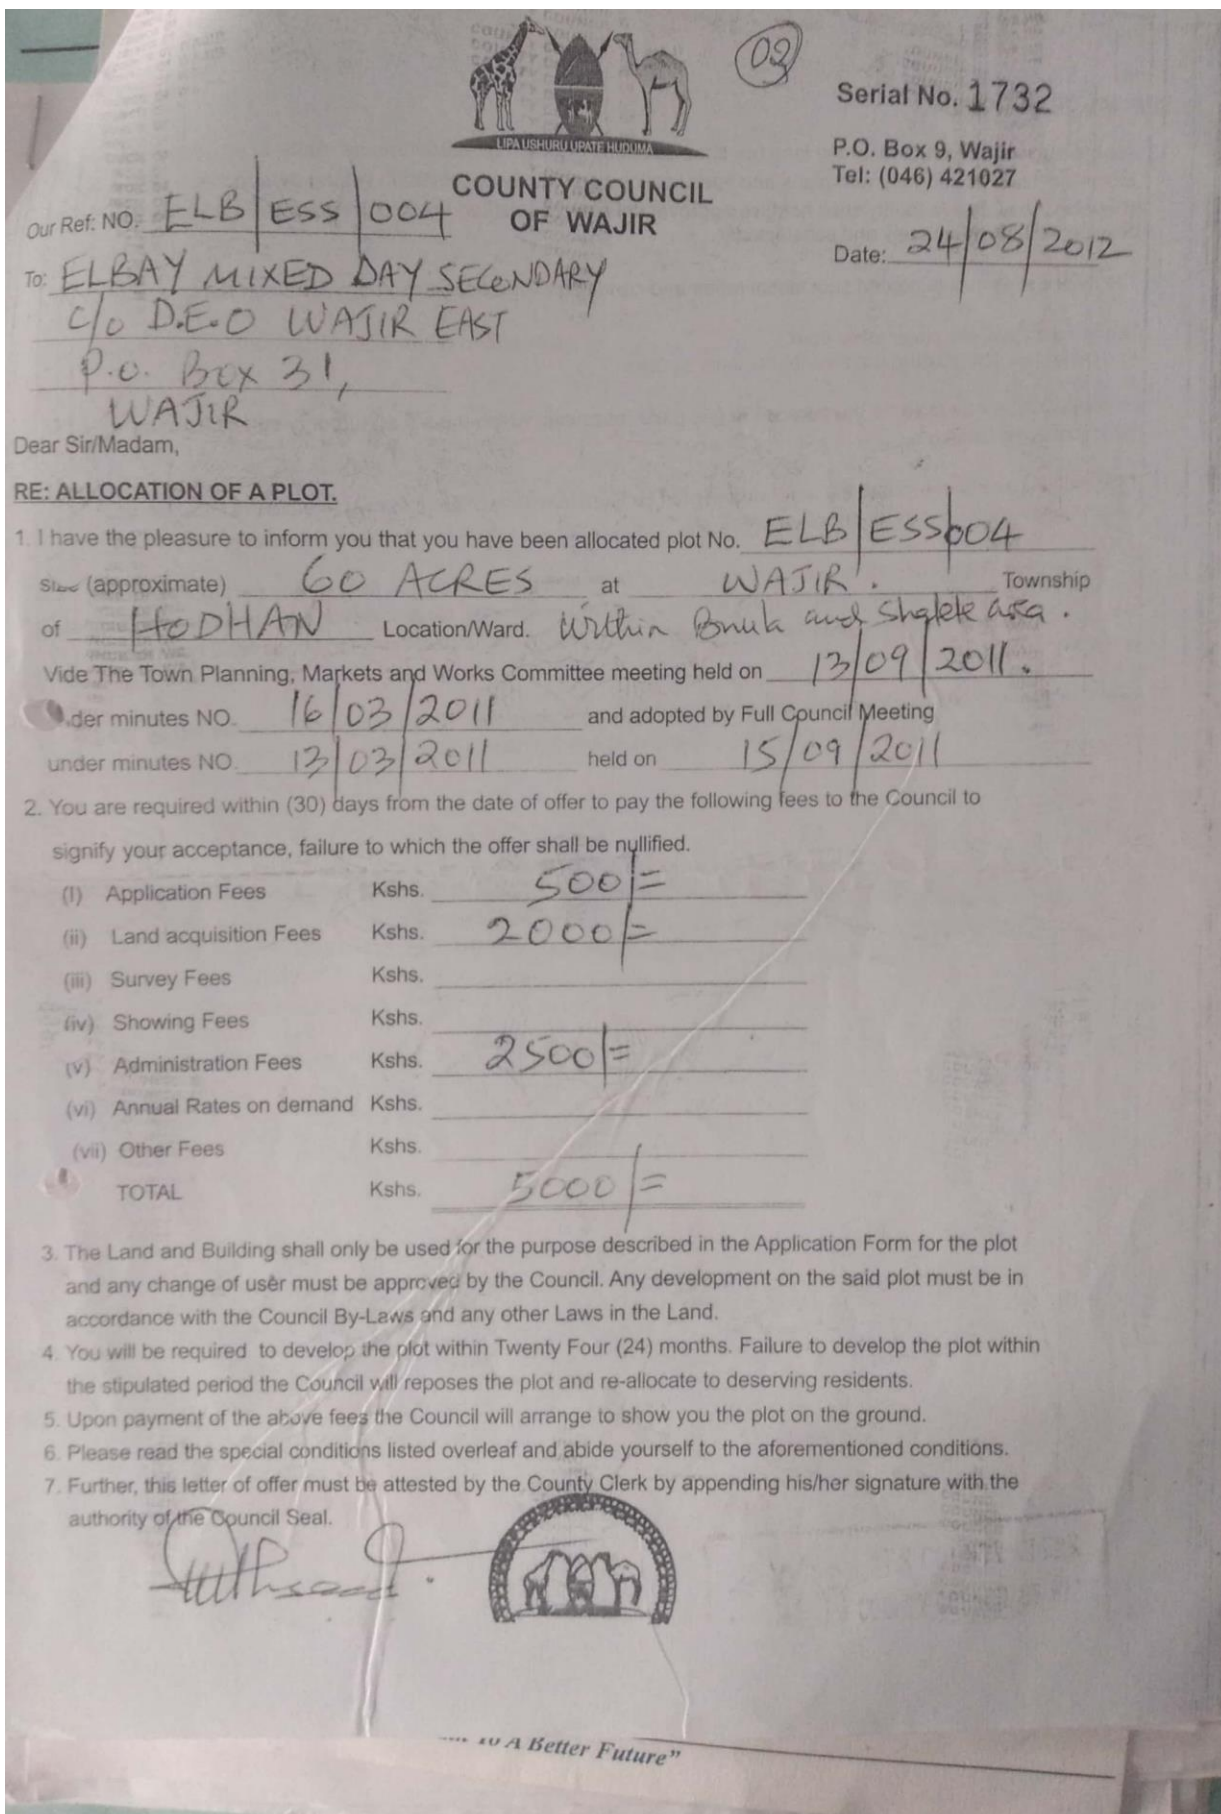 03
Serial No. 1732
LIPA USHURU UPATE HUDUMA
P.O. Box 9, Wajir
Tel: (046) 421027
COUNTY COUNCIL
OF WAJIR
Our Ref: NO. ELB/ESS/004
Date: 24/08/2012
To: ELBAY MIXED DAY SECONDARY
C/o D.E.O WAJIR EAST
P.O. Box 31,
WAJIR
Dear Sir/Madam,
RE: ALLOCATION OF A PLOT.
1. I have the pleasure to inform you that you have been allocated plot No. ELB/ESS/004
Size (approximate) 60 ACRES at WAJIR. Township
of HODHAN Location/Ward. Within and area.
Vide The Town Planning, Markets and Works Committee meeting held on 13/09/2011.
der minutes NO. 16/03/2011 and adopted by Full Council Meeting
under minutes NO. 13/03/2011 held on 15/09/2011
2. You are required within (30) days from the date of offer to pay the following fees to the Council to
signify your acceptance, failure to which the offer shall be nullified.
(I) Application Fees Kshs. 500/=
(ii) Land acquisition Fees Kshs. 2000/=
(iii) Survey Fees Kshs.
(iv) Showing Fees Kshs.
(v) Administration Fees Kshs. 2500/=
(vi) Annual Rates on demand Kshs.
(vii) Other Fees Kshs.
TOTAL Kshs. 5000/=
3. The Land and Building shall only be used for the purpose described in the Application Form for the plot
and any change of user must be approved by the Council. Any development on the said plot must be in
accordance with the Council By-Laws and any other Laws in the Land.
4. You will be required to develop the plot within Twenty Four (24) months. Failure to develop the plot within
the stipulated period the Council will reposes the plot and re-allocate to deserving residents.
5. Upon payment of the above fees the Council will arrange to show you the plot on the ground.
6. Please read the special conditions listed overleaf and abide yourself to the aforementioned conditions.
7. Further, this letter of offer must be attested by the County Clerk by appending his/her signature with the
authority of the Council Seal.
To A Better Future"